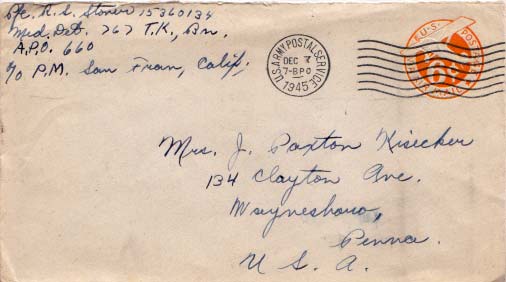 Pfc. R. L. Stoner 15360134
Med. Det. 767 T.K., Bn.
A.P.O. 660
c/o P.M. San Fran, Calif.
U.S. ARMY POSTAL SERVICE
DEC 7
7-BPO
1945
U.S. POSTAGE
6c
AIR MAIL
Mrs. J. Paxton Kisecker
134 Clayton Ave.
Waynesboro,
Penna.
U. S. A.